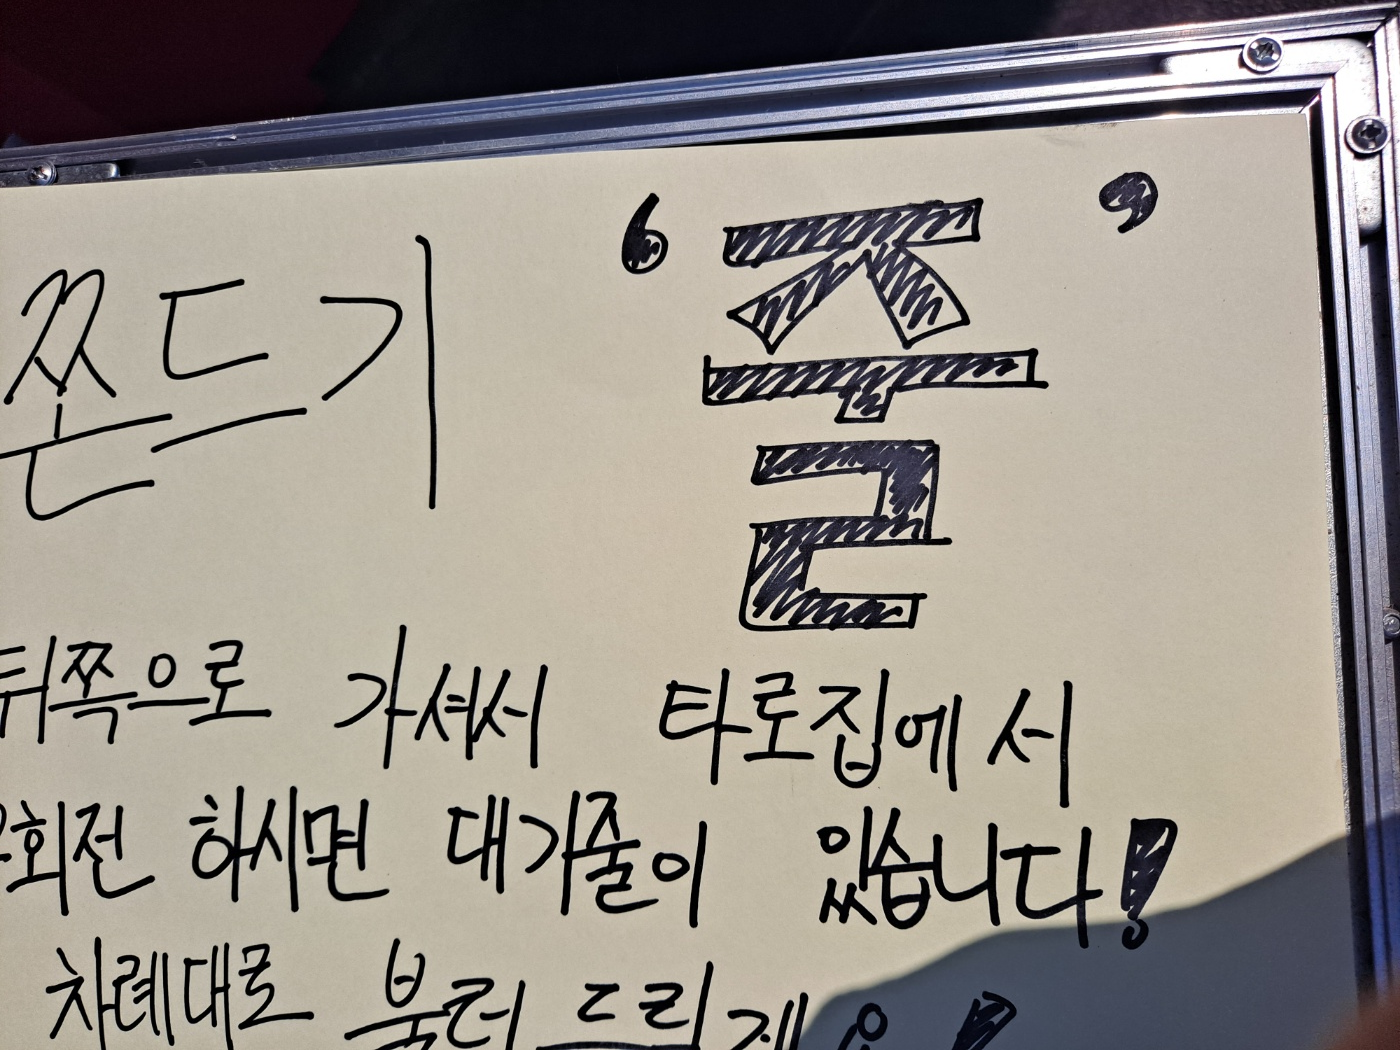 쫀드기 '줄'
뒤쪽으로 가셔서 타로집에서
우회전 하시면 대기줄이 있습니다!
차례대로 불러 드릴게요!